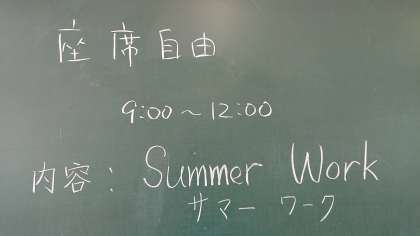 座席自由
9:00～12:00
内容：Summer Work
サマー ワーク